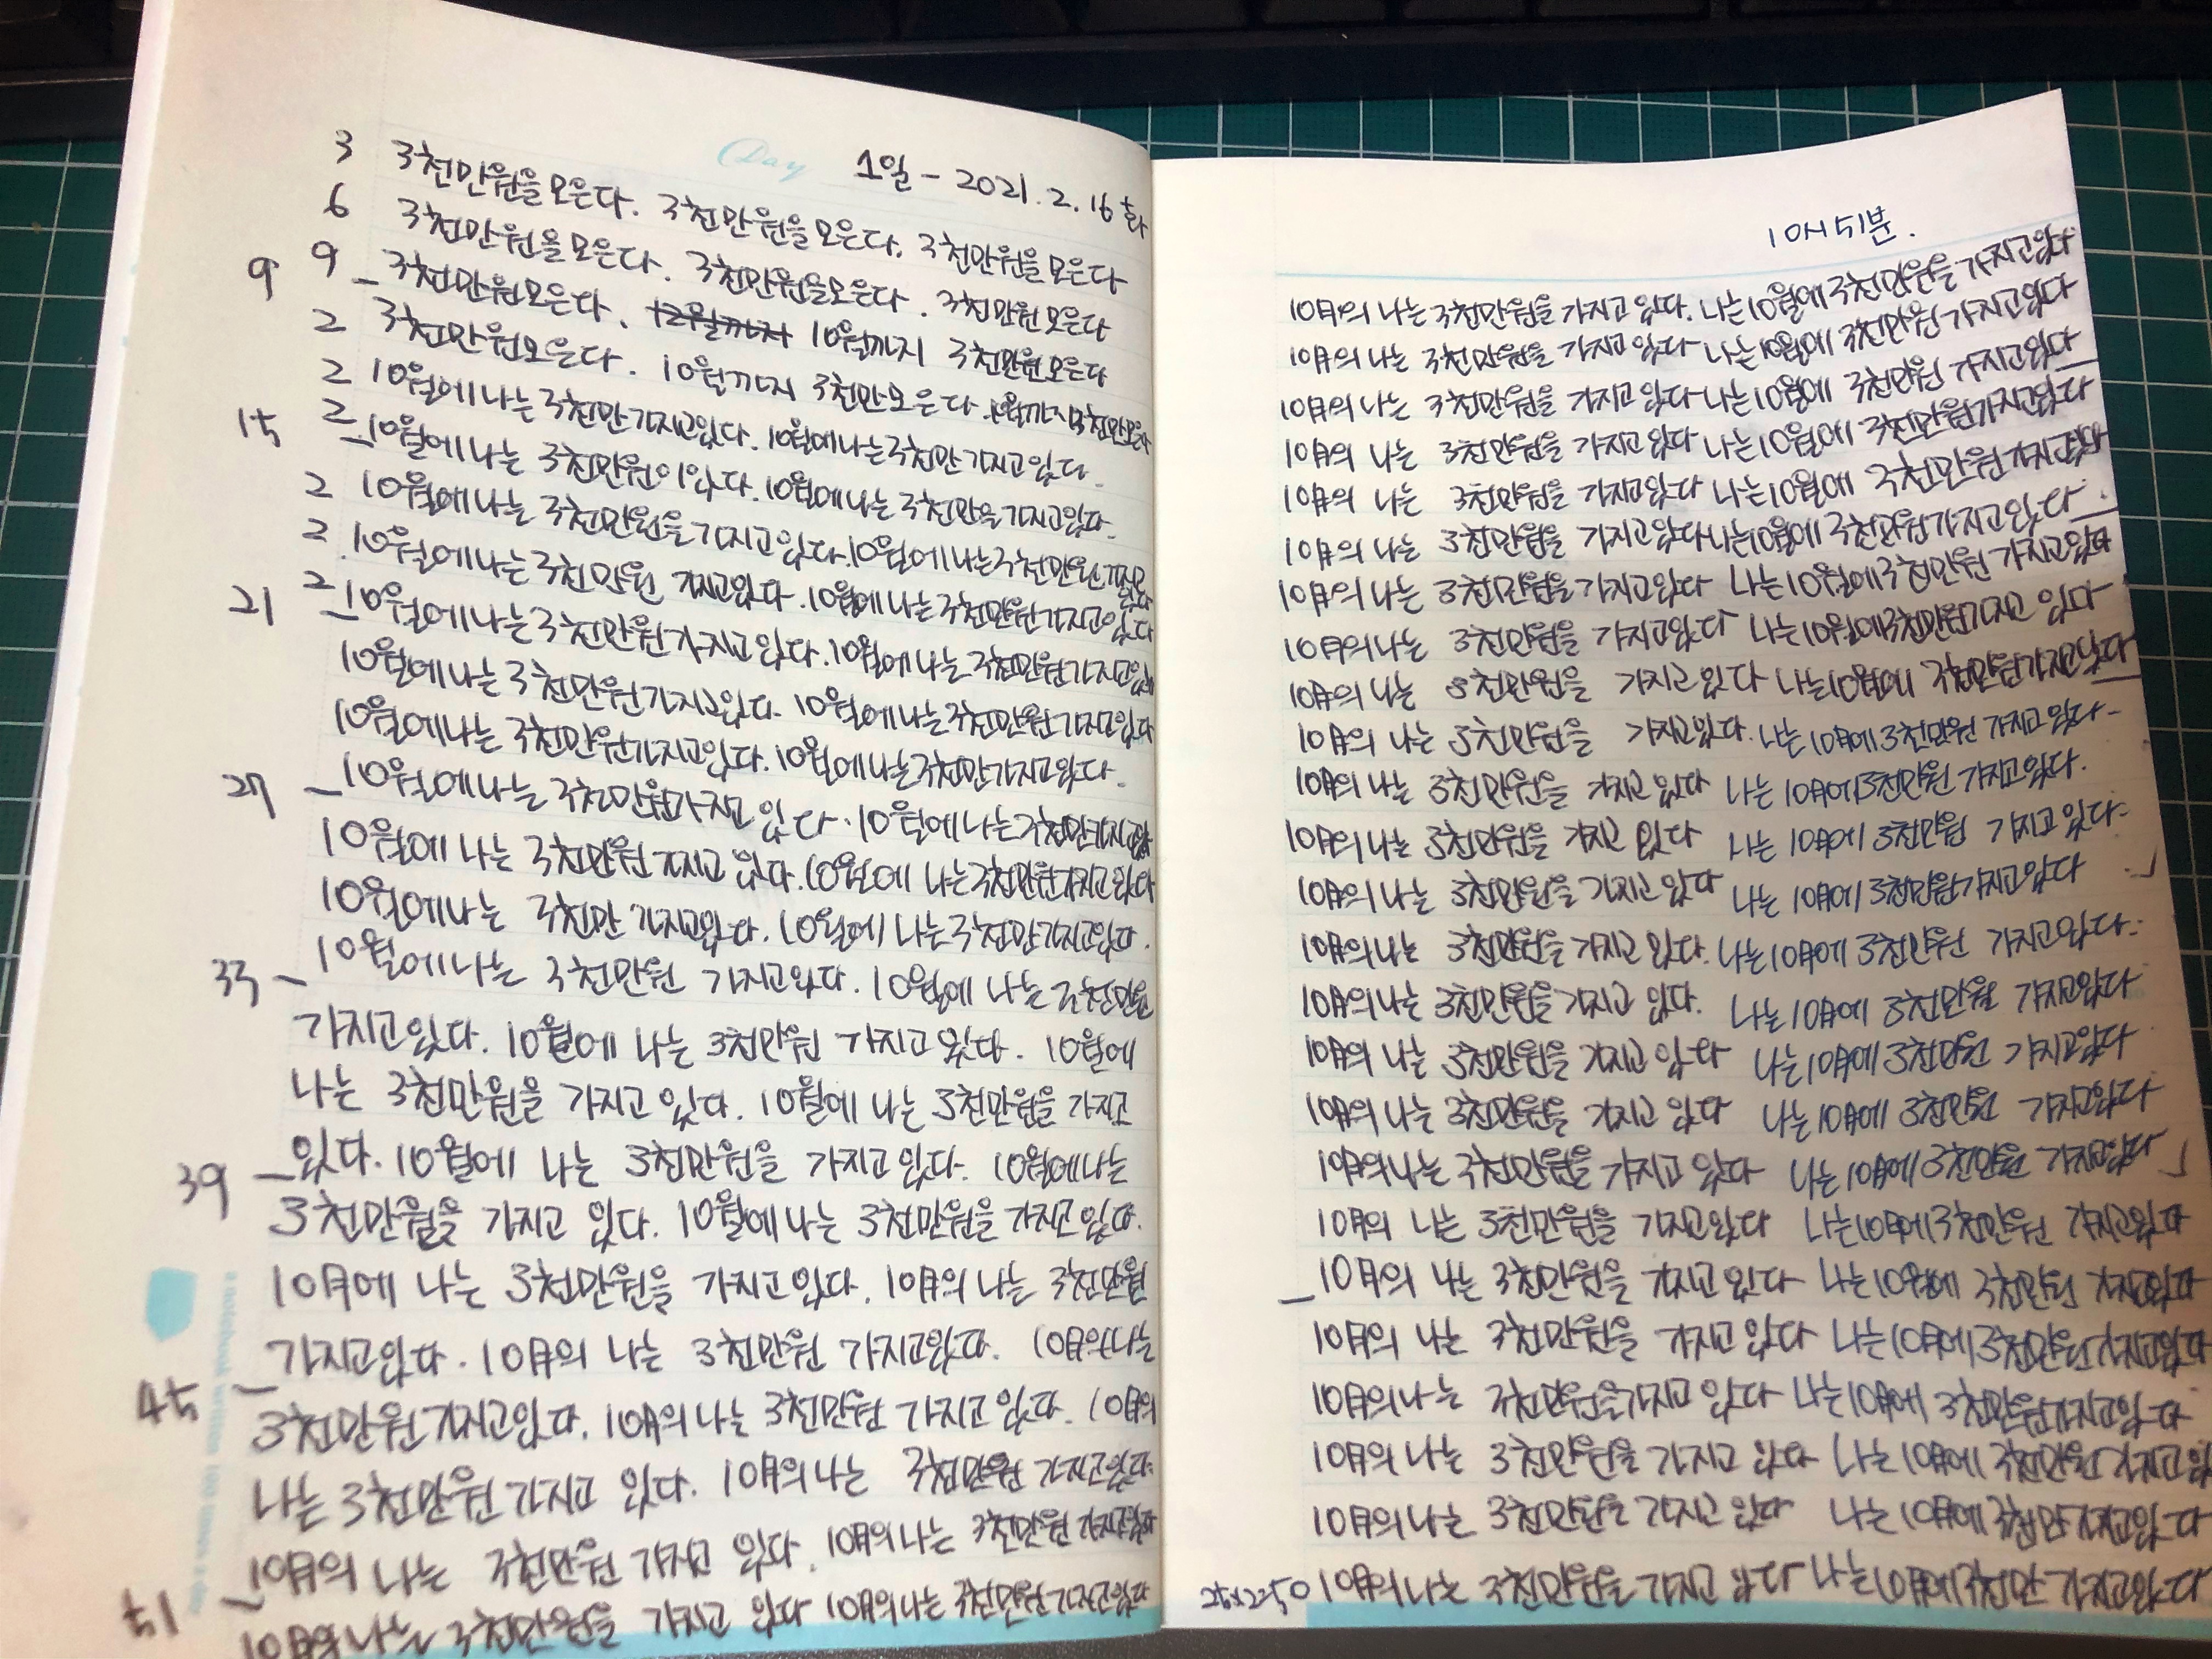 Day 1일 - 2021. 2. 16 화
3 3천만원을 모은다. 3천만원을 모은다. 3천만원을 모은다
6 3천만원을 모은다. 3천만원을 모은다. 3천만원 모은다
9 9 3천만원 모은다. 12월까지 10월까지 3천만원 모은다
2 3천만원 모은다. 10월까지 3천만 모은다. 10월까지 3천만모은다
2 10월에 나는 3천만 가지고있다. 10월에 나는 3천만 가지고 있다.
15 2 10월에 나는 3천만원이 있다. 10월에 나는 3천만을 가지고있다.
2 10월에 나는 3천만원을 가지고 있다. 10월에 나는 3천만원 가지고있다
2 10월에 나는 3천만원 가지고있다. 10월에 나는 3천만원 가지고있다
21 2 10월에 나는 3천만원 가지고 있다. 10월에 나는 3천만원 가지고있다
10월에 나는 3천만원 가지고있다. 10월에 나는 3천만원 가지고있다
10월에 나는 3천만원 가지고있다. 10월에 나는 3천만 가지고있다.
27 10월에 나는 3천만원 가지고 있다. 10월에 나는 3천만 가지고있다
10월에 나는 3천만원 가지고 있다. 10월에 나는 3천만원 가지고있다
10월에 나는 3천만 가지고있다. 10월에 나는 3천만 가지고있다.
33 10월에 나는 3천만원 가지고있다. 10월에 나는 3천만원
가지고있다. 10월에 나는 3천만원 가지고있다. 10월에
나는 3천만원을 가지고 있다. 10월에 나는 3천만원을 가지고
39 있다. 10월에 나는 3천만원을 가지고 있다. 10월에 나는
3천만원을 가지고 있다. 10월에 나는 3천만원을 가지고 있다.
10月에 나는 3천만원을 가지고 있다. 10月의 나는 3천만원
가지고있다. 10月의 나는 3천만원 가지고있다. 10月의 나는
45 3천만원 가지고있다. 10月의 나는 3천만원 가지고 있다. 10月의
나는 3천만원 가지고 있다. 10月의 나는 3천만원 가지고있다.
10月의 나는 3천만원 가지고 있다. 10月의 나는 3천만원 가지고있다
51 10月의 나는 3천만원을 가지고 있다 10月의 나는 3천만원 가지고있다
10시 51분.
10月의 나는 3천만원을 가지고 있다. 나는 10월에 3천만원을 가지고있다
10月의 나는 3천만원을 가지고 있다 나는 10월에 3천만원 가지고있다
10月의 나는 3천만원을 가지고 있다 나는 10월에 3천만원 가지고있다
10月의 나는 3천만원을 가지고 있다 나는 10월에 3천만원 가지고있다
10月의 나는 3천만원을 가지고있다 나는 10월에 3천만원 가지고있다
10月의 나는 3천만원을 가지고있다 나는 10월에 3천만원 가지고있다
10月의 나는 3천만원을 가지고있다 나는 10월에 3천만원 가지고있다
10月의 나는 3천만원을 가지고있다 나는 10월에 3천만원 가지고 있다
10月의 나는 3천만원을 가지고 있다 나는 10월에 3천만원 가지고있다
10月의 나는 3천만원을 가지고있다. 나는 10月에 3천만원 가지고있다.
10月의 나는 3천만원을 가지고 있다 나는 10月에 3천만원 가지고있다.
10月의 나는 3천만원을 가지고 있다 나는 10月에 3천만원 가지고있다.
10月의 나는 3천만원을 가지고있다 나는 10月에 3천만원 가지고있다
10月의 나는 3천만원을 가지고 있다. 나는 10月에 3천만원 가지고있다.
10月의 나는 3천만원을 가지고 있다. 나는 10月에 3천만원 가지고있다
10月의 나는 3천만원을 가지고 있다 나는 10月에 3천만원 가지고있다
10月의 나는 3천만원을 가지고 있다 나는 10月에 3천만원 가지고있다
10月의 나는 3천만원을 가지고 있다 나는 10月에 3천만원 가지고있다
10月의 나는 3천만원을 가지고있다 나는 10月에 3천만원 가지고있다
10月의 나는 3천만원을 가지고 있다 나는 10월에 3천만원 가지고있다
10月의 나는 3천만원을 가지고 있다 나는 10月에 3천만원 가지고있다
10月의 나는 3천만원을 가지고 있다 나는 10月에 3천만원 가지고있다
10月의 나는 3천만원을 가지고 있다 나는 10月에 3천만원 가지고있다
10月의 나는 3천만원을 가지고 있다 나는 10月에 3천만 가지고있다
25x2=50 10月의 나는 3천만원을 가지고 있다 나는 10月에 3천만 가지고있다